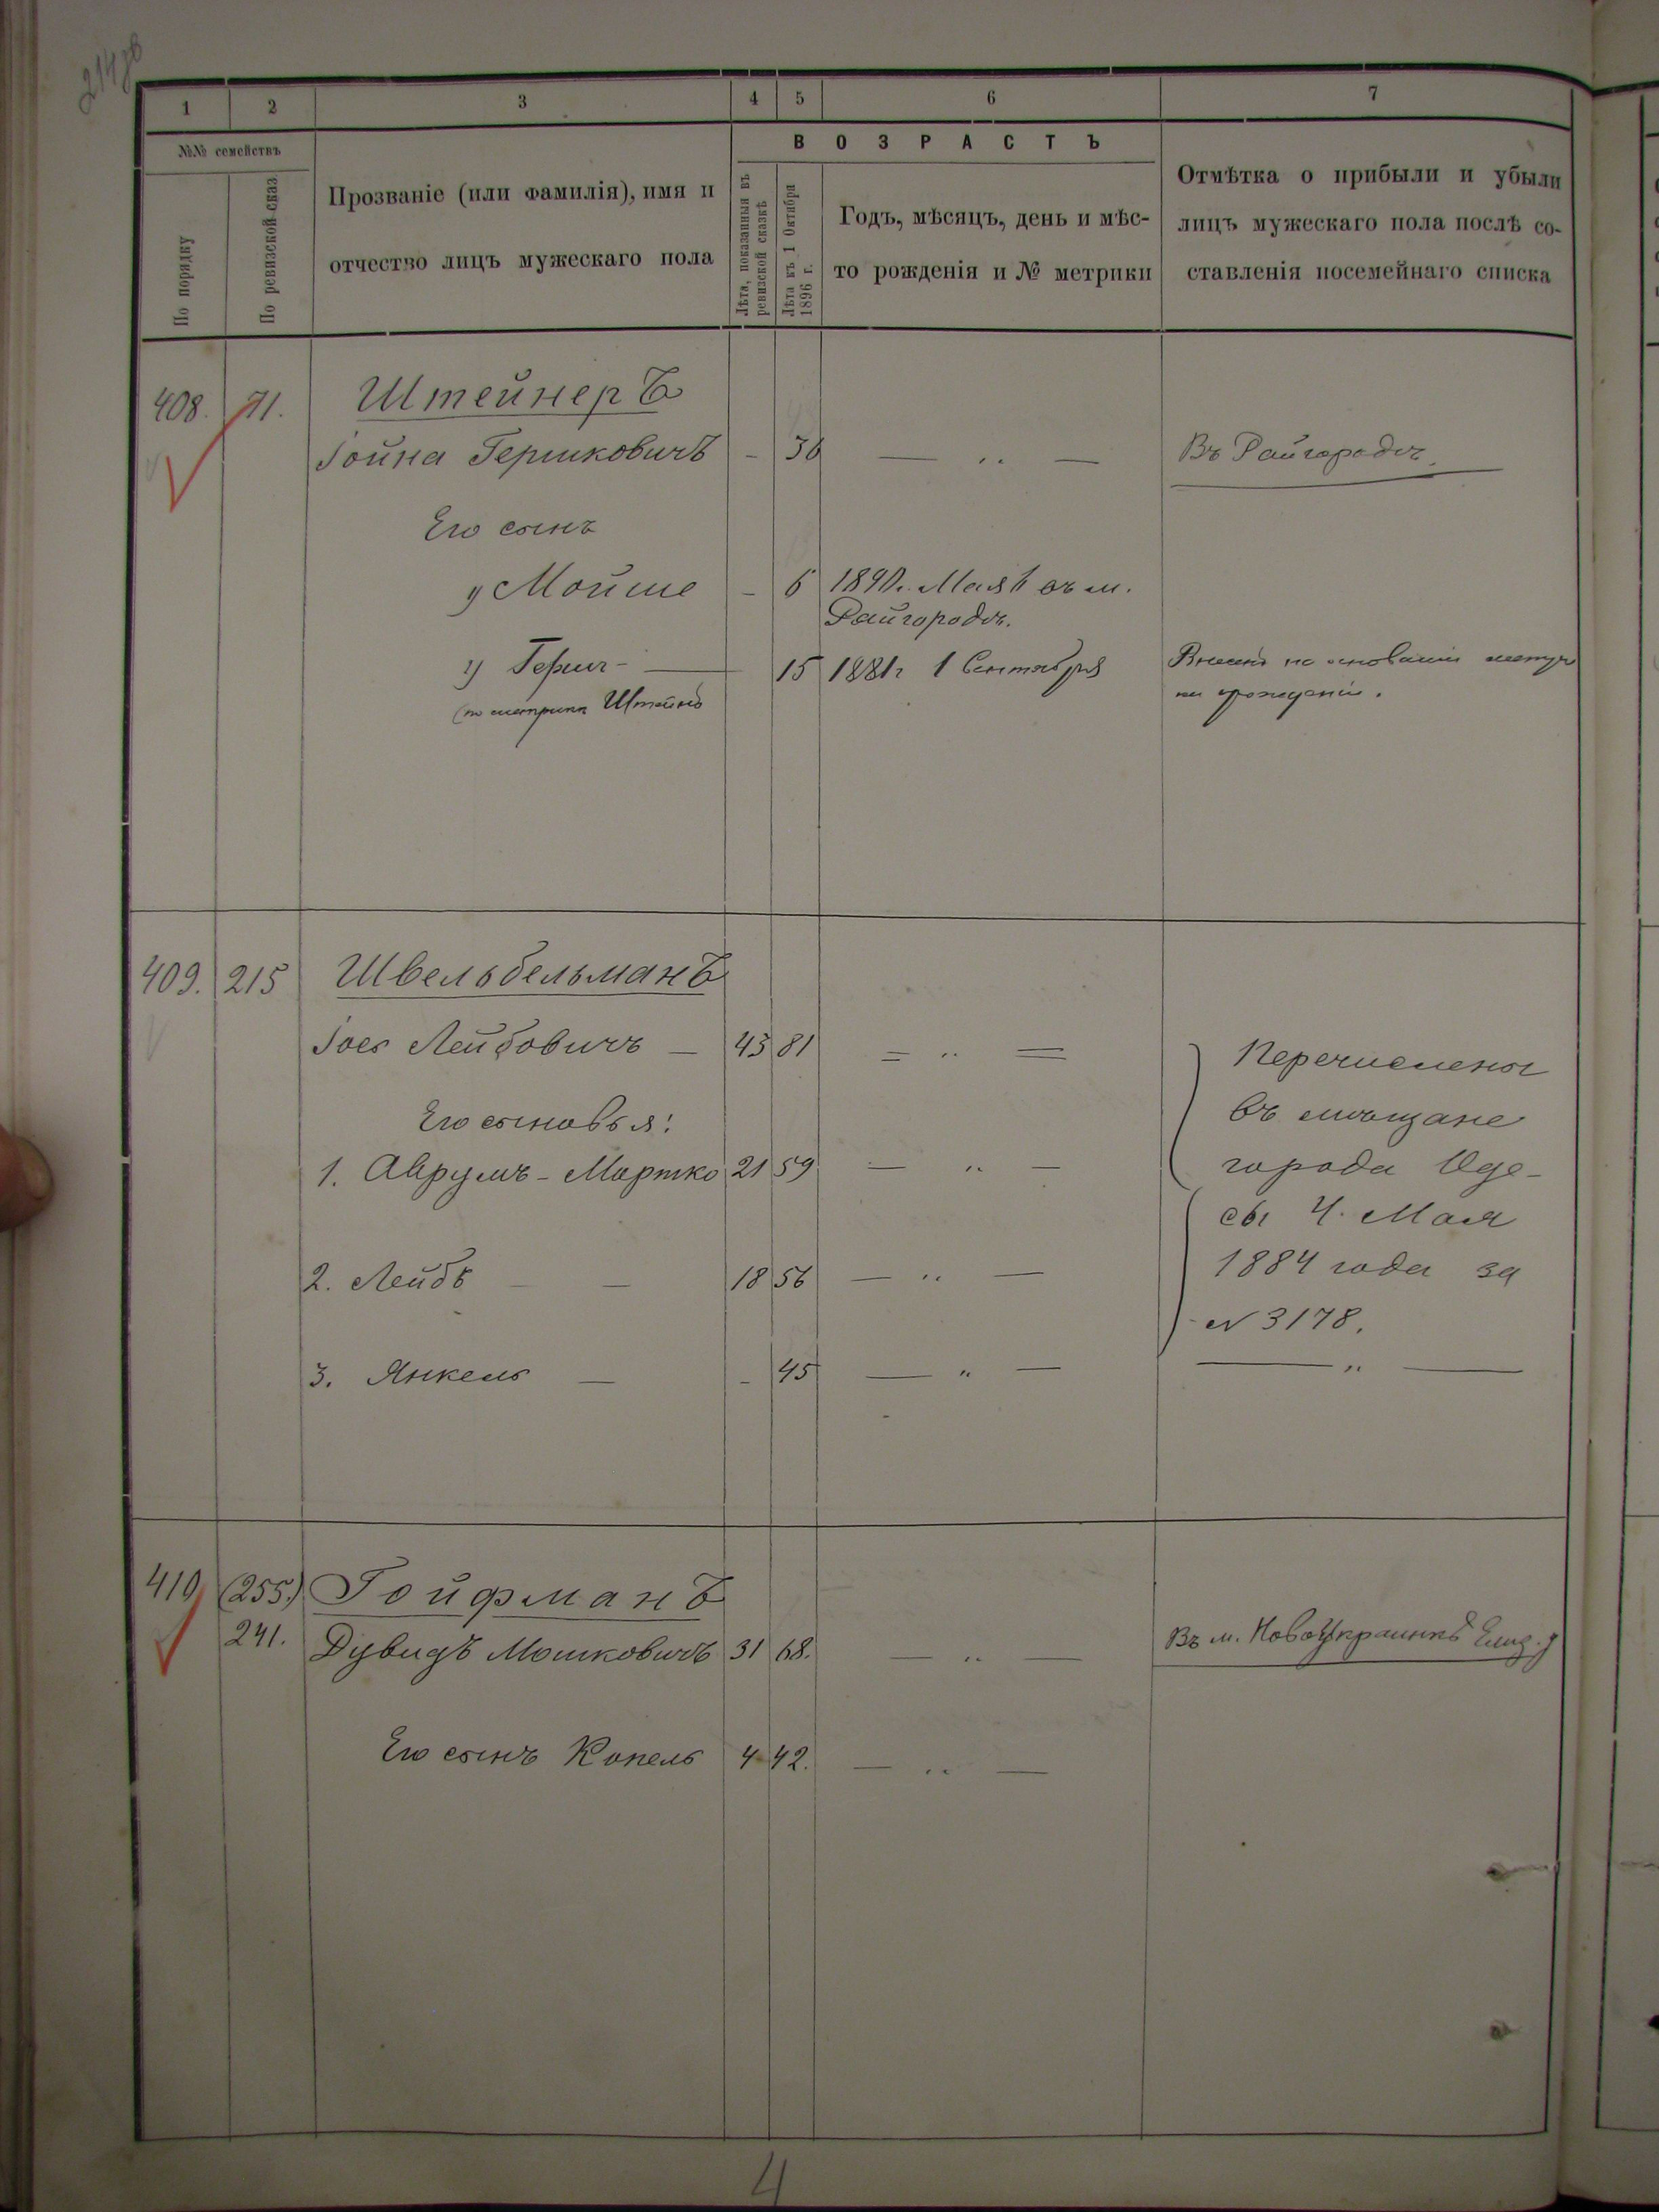 214об
1 2 3 4 5 6 7
№№ семействъ
По порядку
По ревизской сказ
Прозваніе (или фамилія), имя и
отчество лицъ мужескаго пола
ВОЗРАСТЪ
Лѣта, показанныя въ
ревизской сказкѣ
Лѣта къ 1 Октября
1896 г.
Годъ, мѣсяцъ, день и мѣс-
то рожденія и № метрики
Отмѣтка о прибыли и убыли
лицъ мужескаго пола послѣ со-
ставленія посемейнаго списка
408. 71. Штейнеръ
Іойна Гершковичъ - 36 — „ — Въ Райгородѣ
Его сынъ
Мойше - 6 1890 г. Мая 1 въ м.
Райгородѣ.
Гершъ - — 15 1881 г 1 Сентября Внесенъ на основаніи метри
(по метрикѣ Штейнъ
409. 215 Швельбельманъ
Іось Лейбовичъ — 43 81 = „ = Перечислены
въ мѣщане
Его сыновья:
1. Аврумъ-Мортко 21 59 — „ — города Оде-
сы 4. Мая
2. Лейбъ — — 18 56 — „ — 1884 года за
№ 3178.
3. Янкель — - 45 — „ — — „ —
410 (255.) Гойфманъ
241. Дувидъ Мошковичъ 31 68. — „ — Въ м. НовоУкраинкѣ Елиз. у
Его сынъ Копель 4 42. — „ —
4